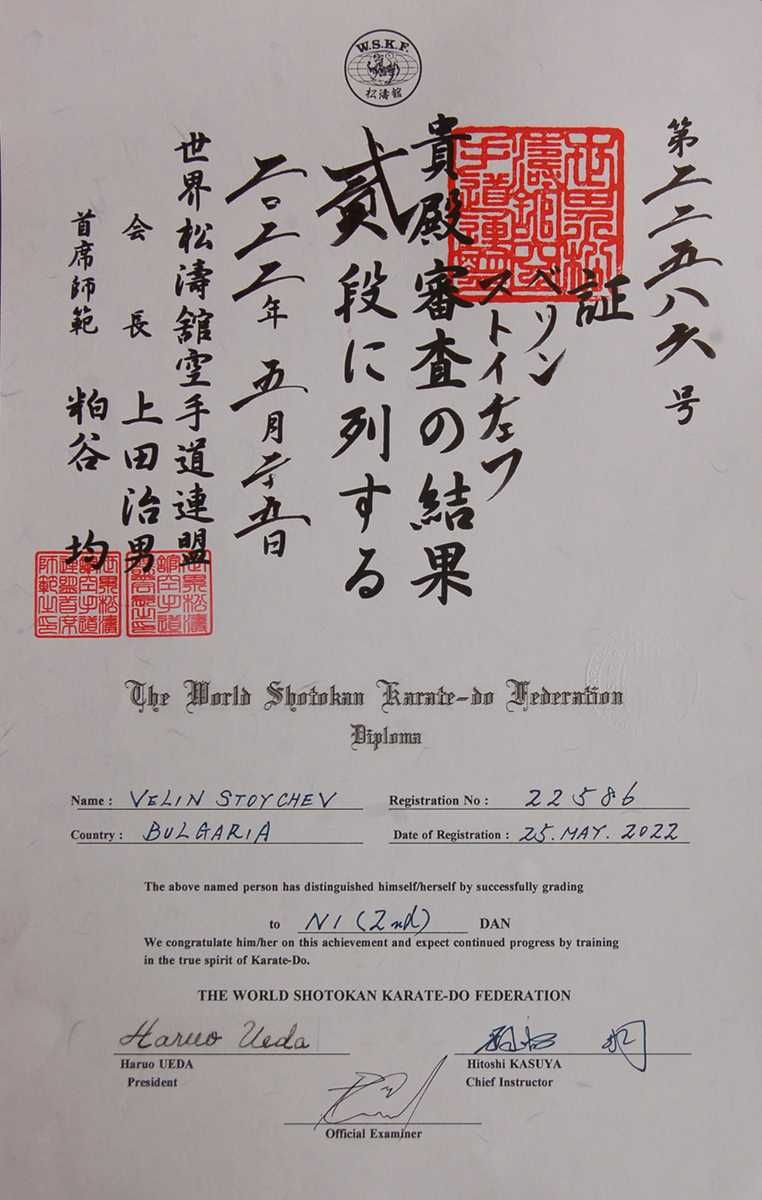 W.S.K.F.
松濤館
第二二五八六号
世界松
濤舘空
手道連盟
証
ベリン
ストイチェフ
貴殿審査の結果
貳段に列する
二〇二二年 五月二十五日
世界松濤舘空手道連盟
会長 上田治男
首席師範 粕谷 均
世界松濤
舘空手道
連盟首席
師範之印
The World Shotokan Karate-do Federation
Diploma
Name : VELIN STOYCHEV Registration No : 22586
Country : BULGARIA Date of Registration : 25. MAY. 2022
The above named person has distinguished himself/herself by successfully grading
to NI (2nd) DAN
We congratulate him/her on this achievement and expect continued progress by training
in the true spirit of Karate-Do.
THE WORLD SHOTOKAN KARATE-DO FEDERATION
Haruo Ueda
Haruo UEDA Hitoshi KASUYA
President Chief Instructor
Official Examiner